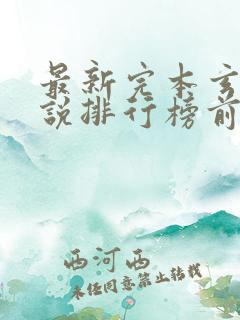 最新完本玄
说排行榜前
西河西
未经同意禁止转载